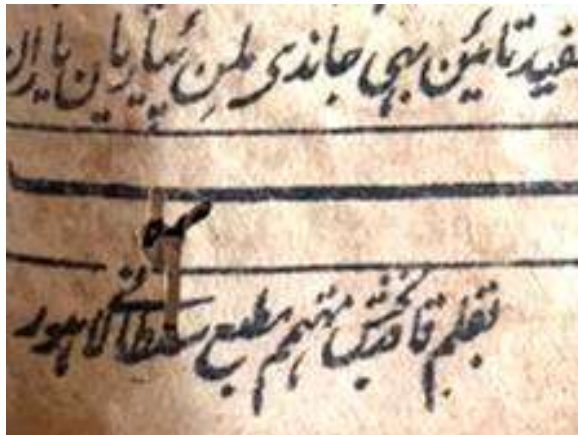 سفید تائین بہی جاندی ملن پیاریان یاران
بقلم قادربخش مہتمم مطبع سلطانی لاہور